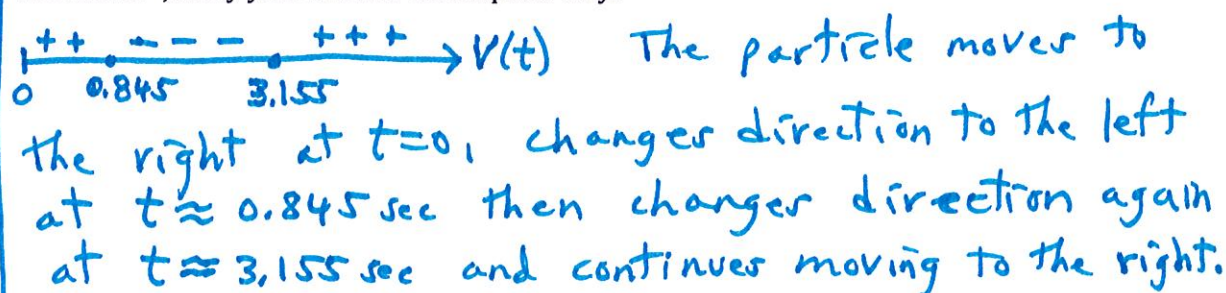 ++ - - - - +++ V(t) The particle moves to
0 0.845 3.155
the right at t=0, changes direction to the left
at t ≈ 0.845 sec then changes direction again
at t ≈ 3.155 sec and continues moving to the right.